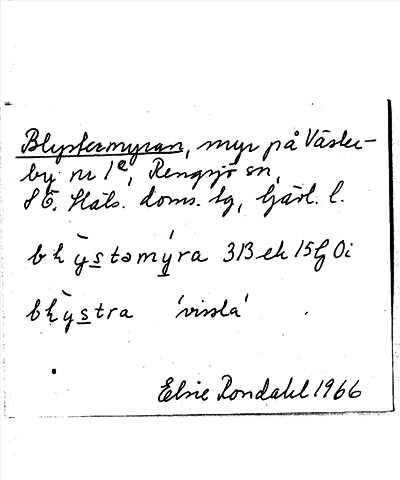 Blystermyran, myr på Väster-
by nr 1e, Rengsjö sn,
SÖ. Häls. doms. tg, Gävl. l.
bḷy̆stəmýra 313 ek 15g 0i
bḷy̆stra 'vissla'
Elsie Rondahl 1966